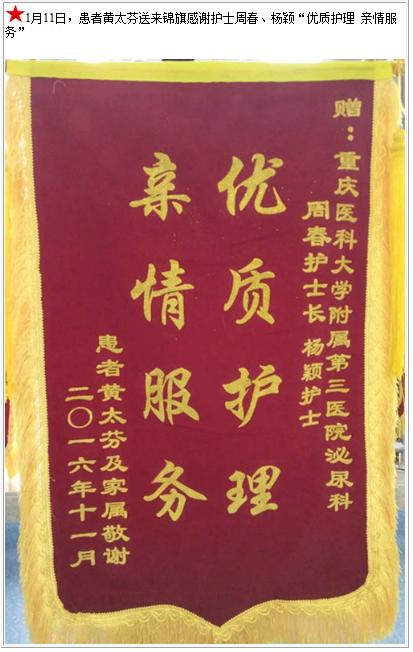 ★1月11日，患者黄太芬送来锦旗感谢护士周春、杨颖“优质护理 亲情服
务”
赠：重庆医科大学附属第三医院泌尿科
周春护士长 杨颖护士
优质护理
亲情服务
患者黄太芬及家属敬谢
二〇一六年十一月